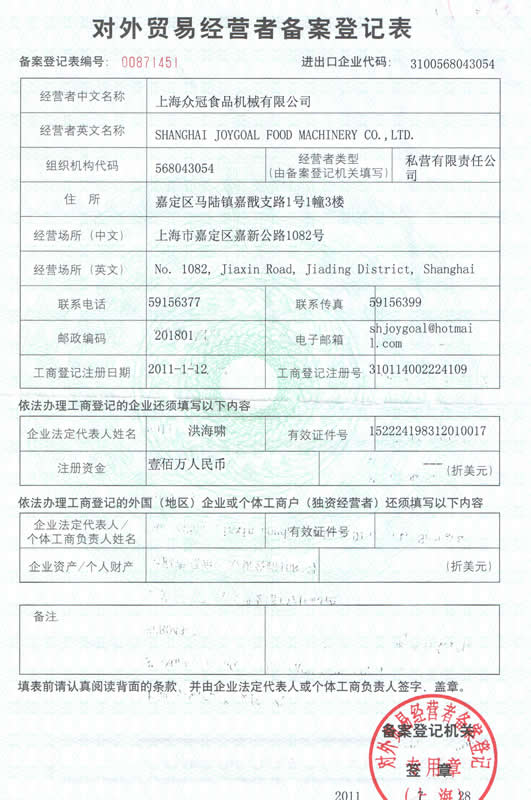 对外贸易经营者备案登记表
备案登记表编号: 00871451 进出口企业代码: 3100568043054
经营者中文名称 上海众冠食品机械有限公司
经营者英文名称 SHANGHAI JOYGOAL FOOD MACHINERY CO.,LTD.
组织机构代码 568043054 经营者类型 (由备案登记机关填写) 私营有限责任公
司
住 所 嘉定区马陆镇嘉戬支路1号1幢3楼
经营场所（中文） 上海市嘉定区嘉新公路1082号
经营场所（英文） No. 1082, Jiaxin Road, Jiading District, Shanghai
联系电话 59156377 联系传真 59156399
邮政编码 201801 电子邮箱 shjoygoal@hotmai
l.com
工商登记注册日期 2011-1-12 工商登记注册号 310114002224109
依法办理工商登记的企业还须填写以下内容
企业法定代表人姓名 洪海啸 有效证件号 152224198312010017
注册资金 壹佰万人民币 (折美元)
依法办理工商登记的外国（地区）企业或个体工商户（独资经营者）还须填写以下内容
企业法定代表人/
个体工商负责人姓名 有效证件号
企业资产/个人财产 (折美元)
备注
填表前请认真阅读背面的条款、并由企业法定代表人或个体工商负责人签字、盖章。
对外贸易经营者备案登记
备案登记机关
专用章
签 章
(上海)
2011 28